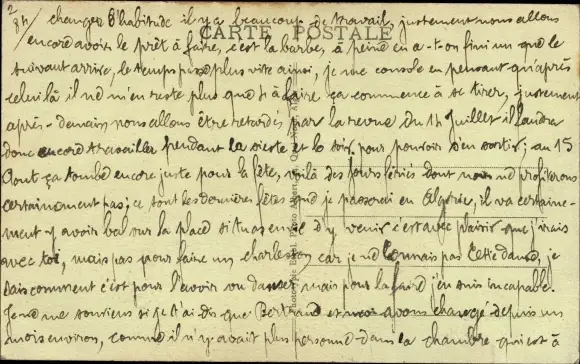 2
84/ changer d'habitude il y a beaucoup de travail, justement nous allons
CARTE POSTALE
encore avoir le prêt à faire, c'est la barbe, à peine en a-t-on fini un que le
suivant arrive, le temps passe plus vite ainsi, je me console en pensant qu'après
celui là il ne m'en reste plus que à faire ça commence à se tirer, justement
après-demain nous allons être retardés par la revue du 14 Juillet il faudra
donc encore travailler pendant la sieste et le soir pour pouvoir s'en sortir; au 15
Aout ça tombe encore juste pour la fête, voilà des jours fériés dont nous ne profiterons
certainement pas; ce sont les dernières fêtes que je passerai en Algérie, il va certaine-
ment y avoir bal sur la place si tu as envie d'y venir c'est avec plaisir que j'irais
avec toi, mais pas pour faire un charleston car je ne connais pas cette danse, je
sais comment c'est pour l'avoir vu danser mais pour la faire j'en suis incapable.
Je ne me souviens si je t'ai dis que Bertrand et moi avons changé depuis un
mois environ, comme il n'y avait plus personne dans la chambre qui est à